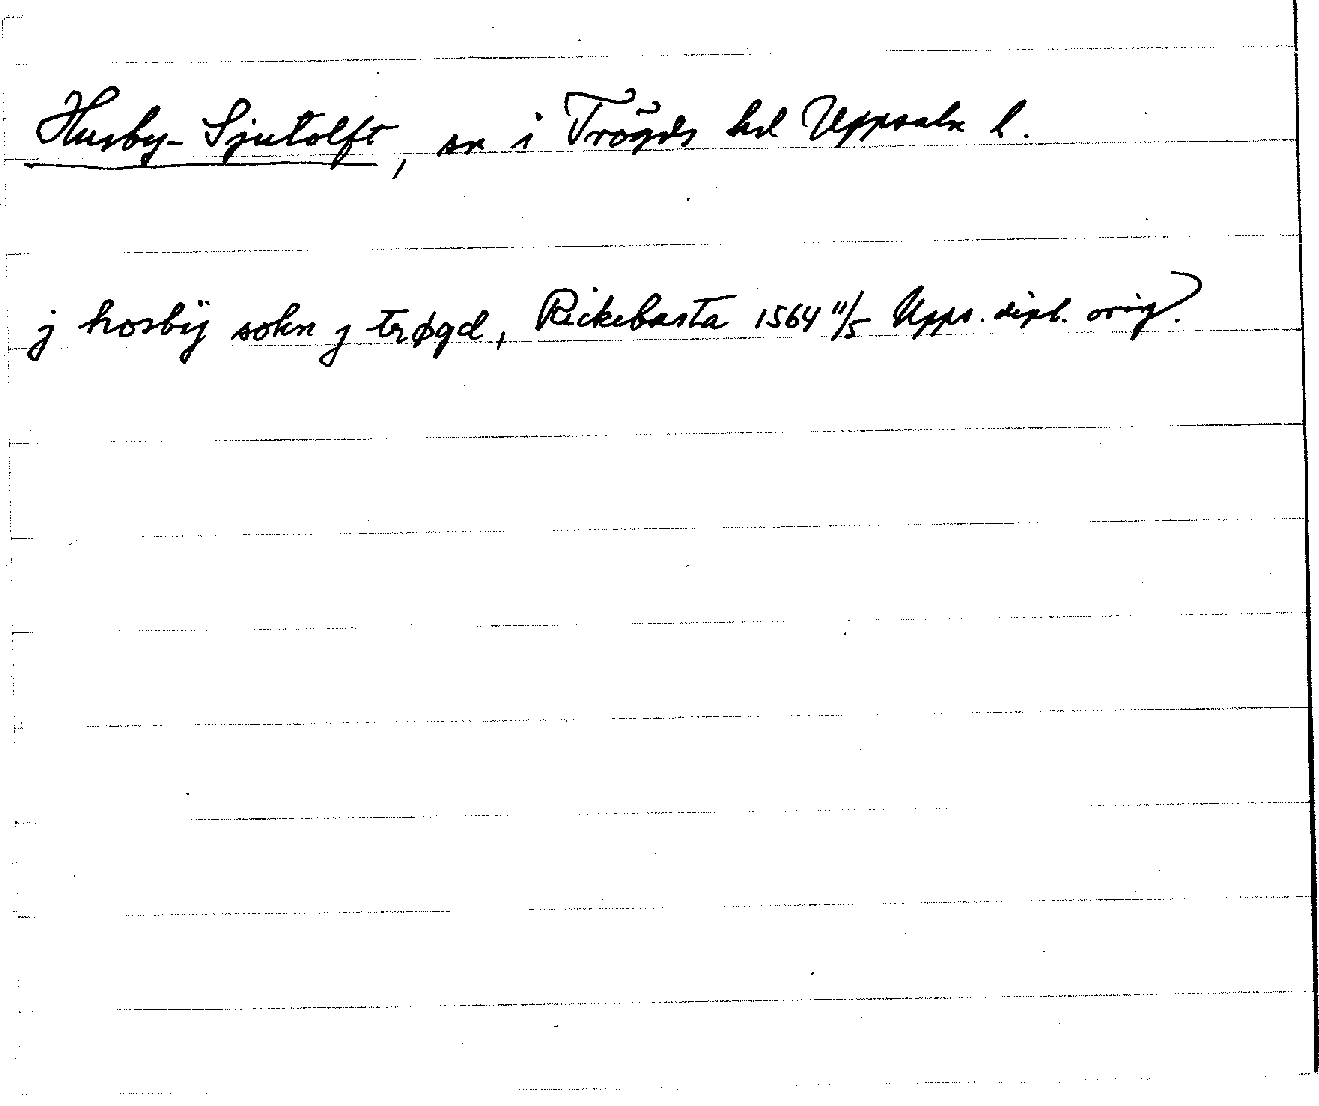 Husby-Sjutolft, sn i Trögds hd Uppsala l.
j hosbÿ sokn j trøgd, Rickebasta 1564 11/5 Upps. dipl. orig.